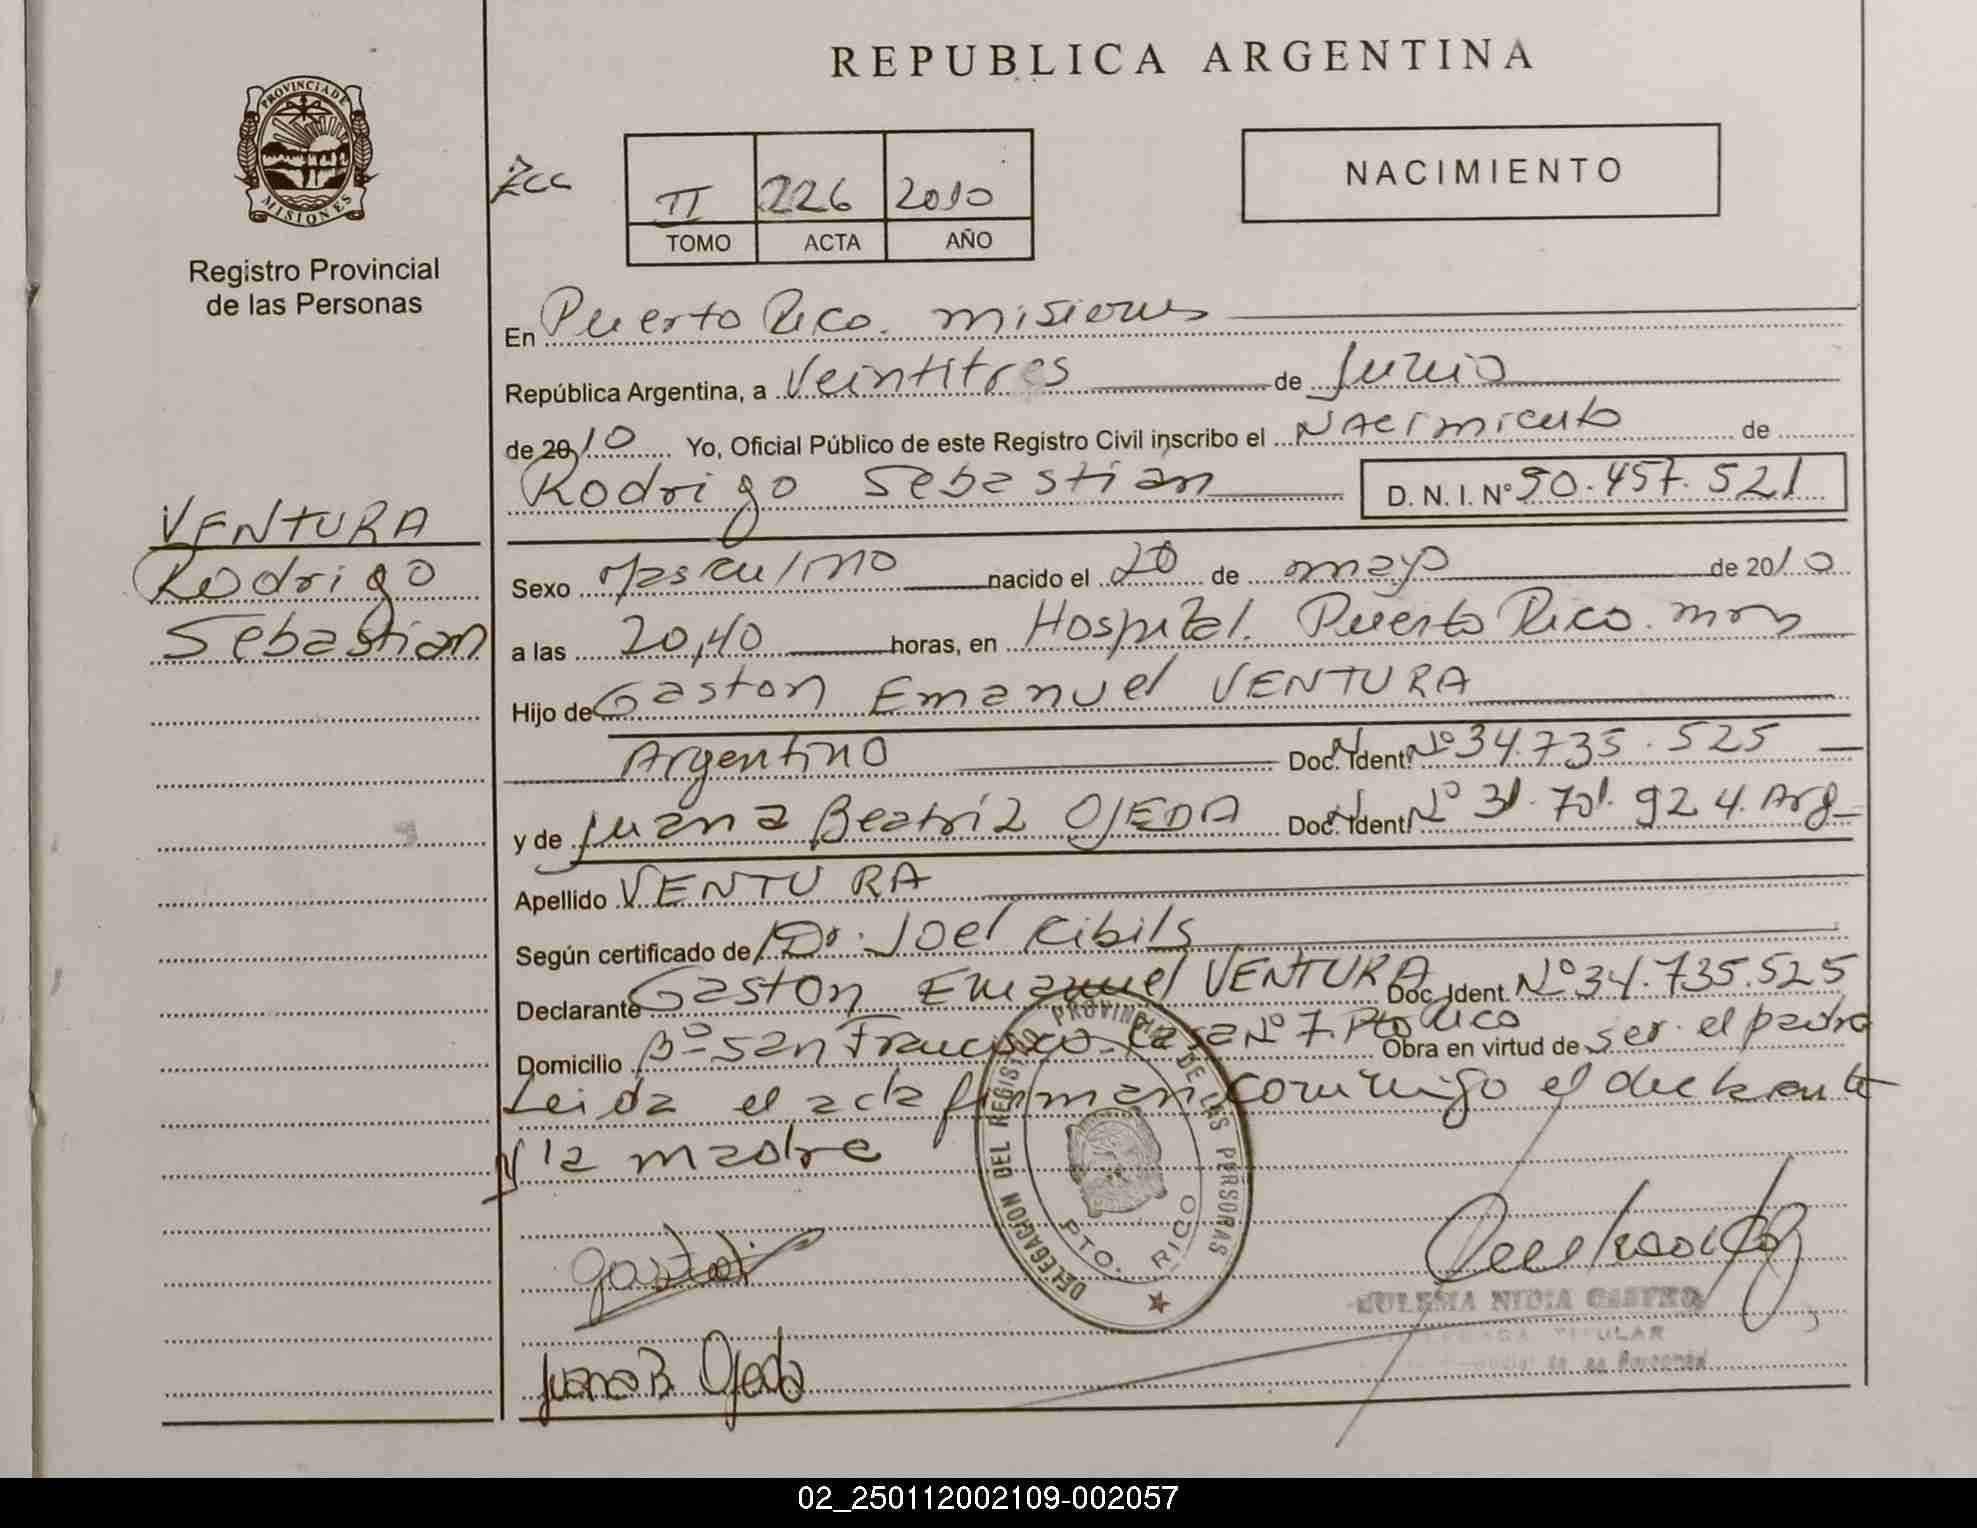 REPUBLICA ARGENTINA
PROVINCIA DE
MISIONES
Registro Provincial
de las Personas
II 226 2010
TOMO ACTA AÑO
NACIMIENTO
En Puerto Rico. Misiones
República Argentina, a Veintitres de Junio
de 2010 Yo, Oficial Público de este Registro Civil inscribo el Nacimiento de
Rodrigo Sebastián D. N. I. Nº 50.457.521
VENTURA
Rodrigo
Sebastián
Sexo Masculino nacido el 20 de mayo de 2010
a las 20,40 horas, en Hospital. Puerto Rico. mns
Hijo de Gaston Emanuel VENTURA
Argentino Doc. Ident. Nº 34.735.525
y de Juana Beatríz OJEDA Doc. Ident. Nº 31.701.924. Arg
Apellido VENTURA
Según certificado de Dr. Joel Kibils
Declarante Gaston Emanuel VENTURA Doc. Ident. Nº 34.735.525
Domicilio Bº San Francisco. Casa Nº 7. Pto Rico Obra en virtud de ser el padre
Leida el acta firman conmigo el declarante
y la madre
DELEGACION DEL REGISTRO PROVINCIAL DE LAS PERSONAS
PTO. RICO
Juana B. Ojeda
NIDIA CASTRO
TITULAR
02_250112002109-002057